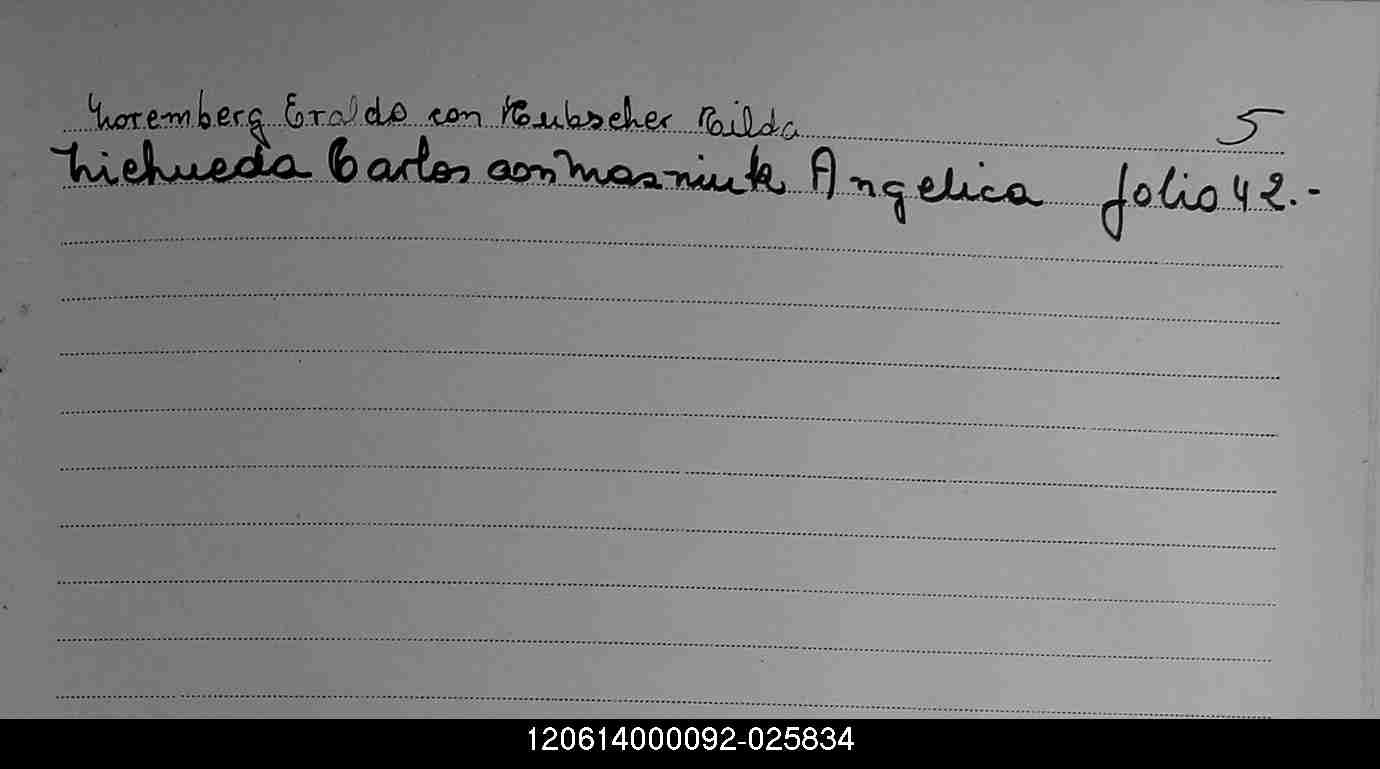 Noremberg Eraldo con Hubscher Hilda 5
Carlos con Masniuk Angelica folio 42.-
120614000092-025834